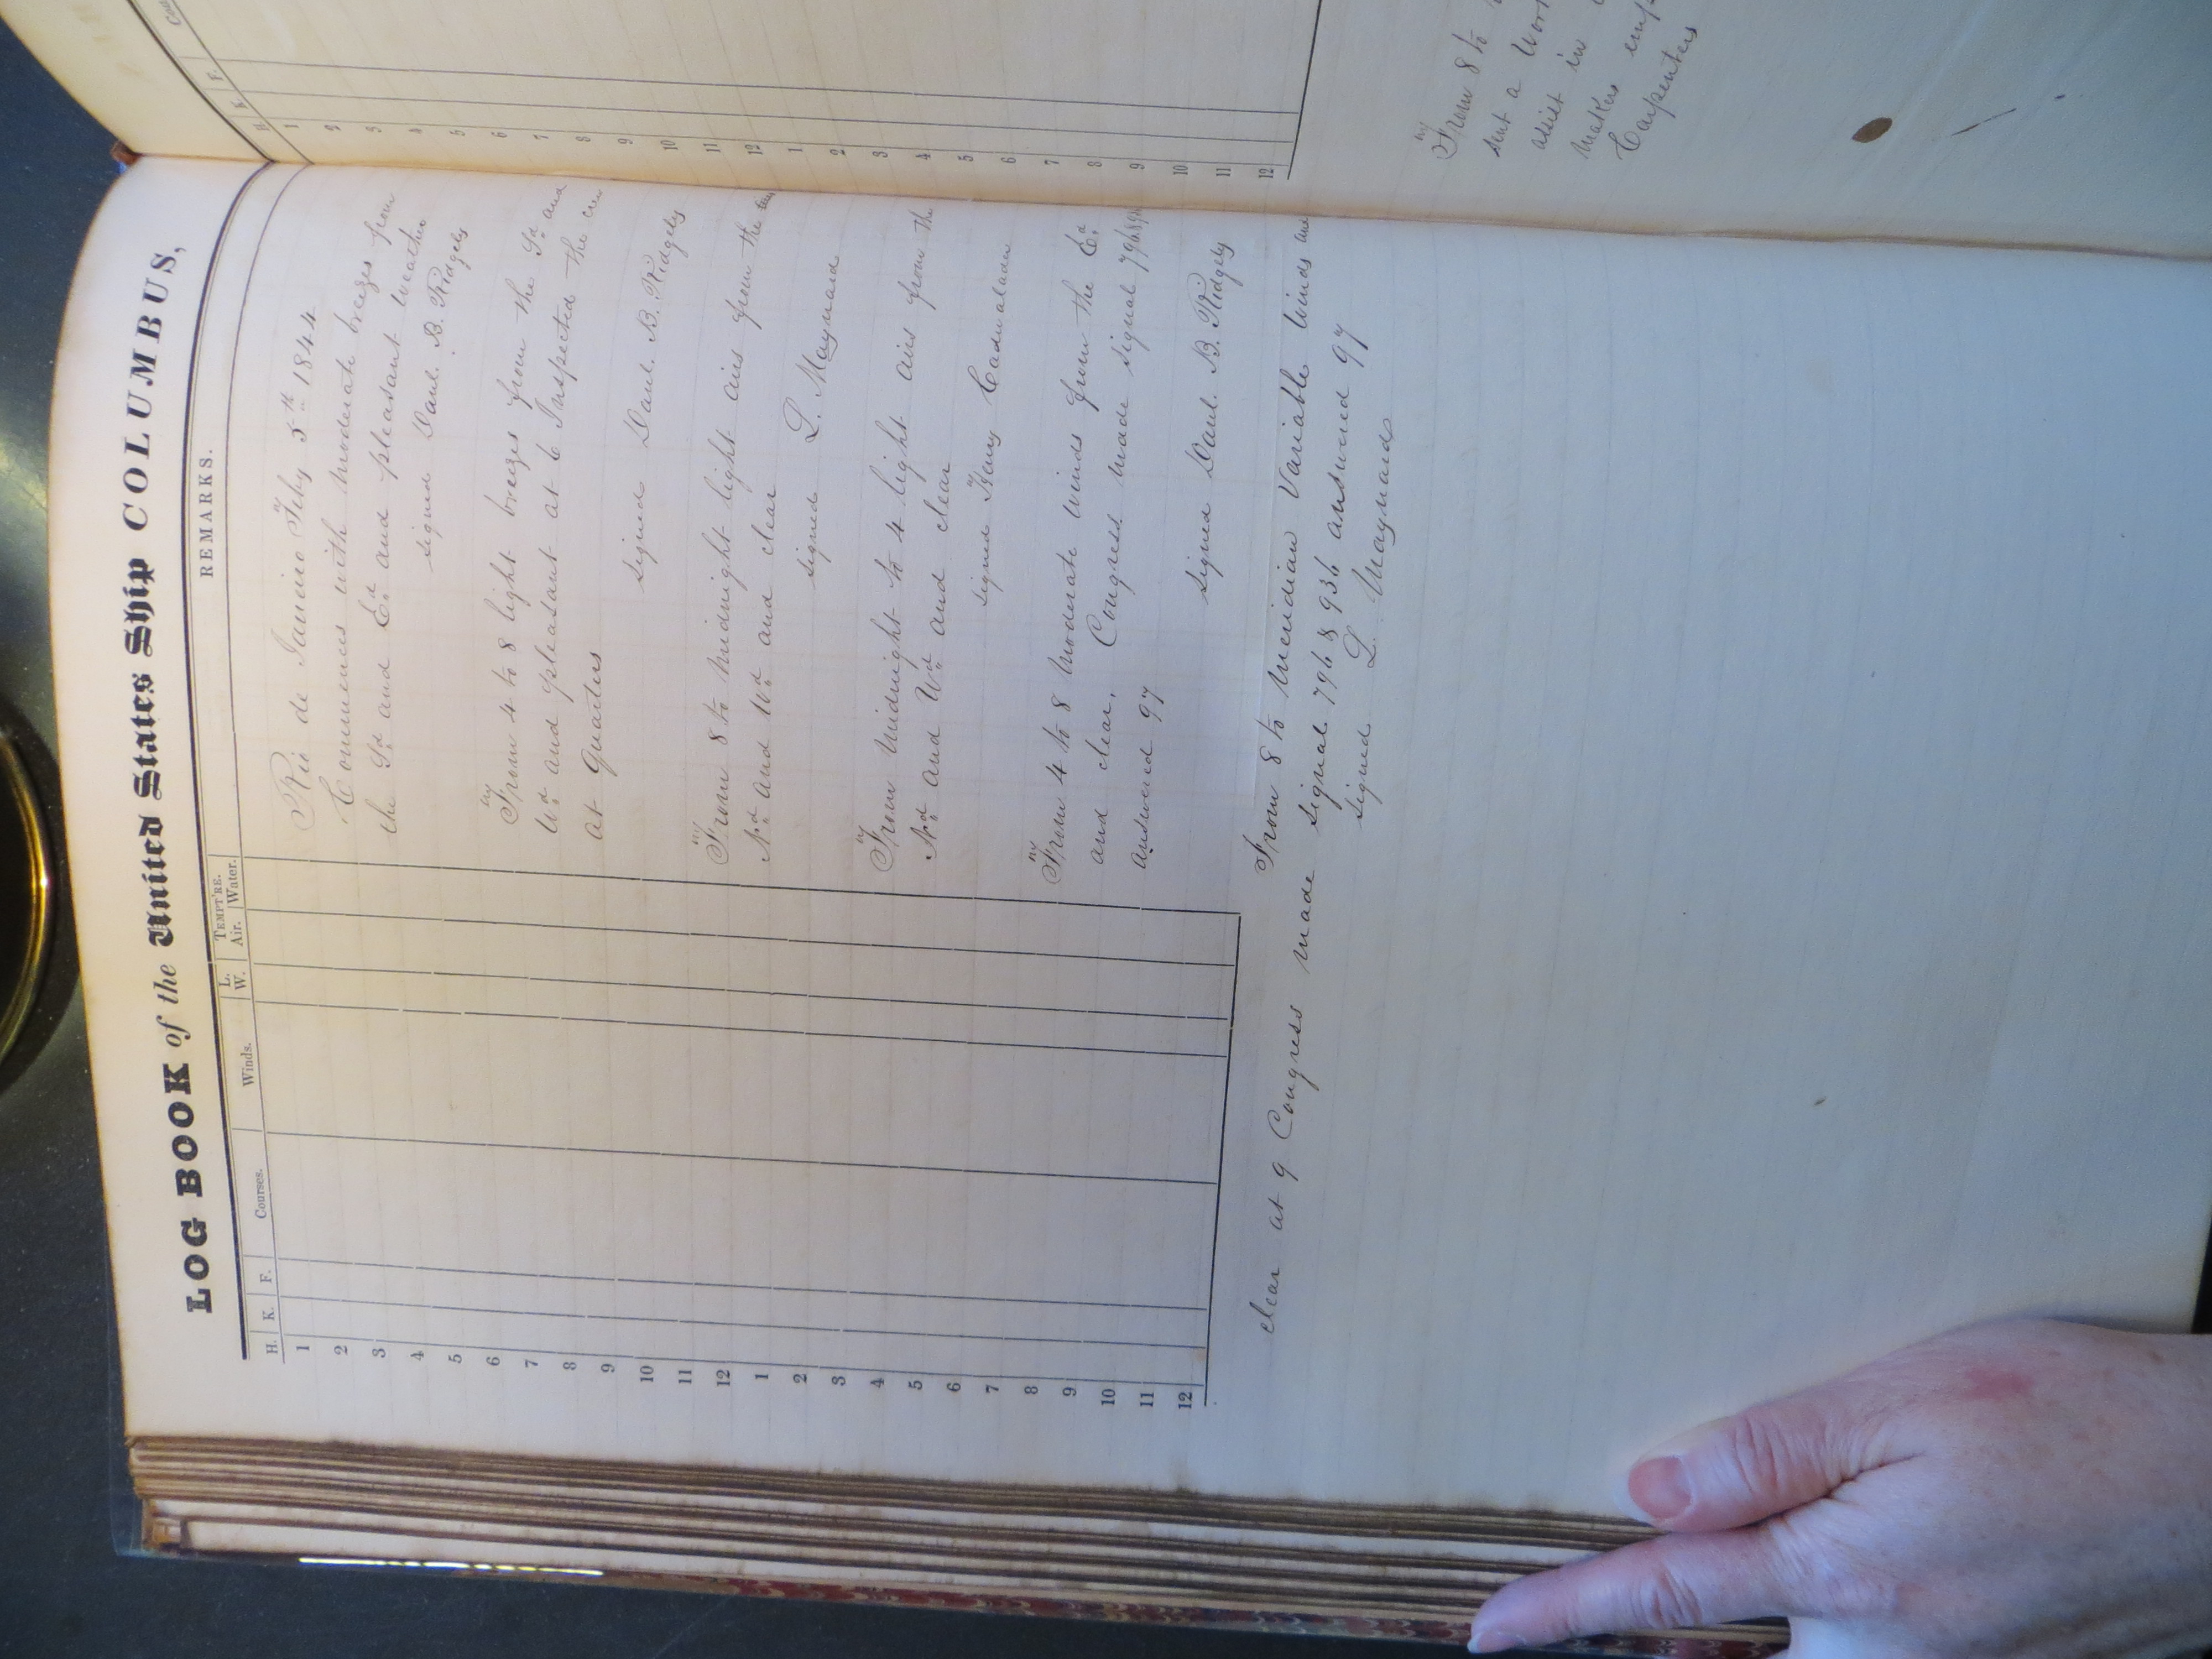 LOG BOOK of the United States Ship COLUMBUS,
H. K. F. Courses. Winds. L. W. TEMPT'RE. Air. Water. REMARKS.
1
2
3
4
5
6
7
8
9
10
11
12
1
2
3
4
5
6
7
8
9
10
11
12
Rio de Janeiro Feby 5th 1844
Commences with moderate breezes from
the Sd and Ed and pleasant weather
signed Danl. B. Ridgely
From 4 to 8 light breezes from the Sd and
Wd and pleasant at 6 Inspected the crew
at quarters
signed Danl. B. Ridgely
From 8 to Midnight light airs from the
Nd and Wd and clear
signed L. Maynard
From Midnight to 4 light airs from the
Nd and Wd and clear
signed Henry Cadwalader
From 4 to 8 Moderate winds from the Ed
and clear. Congress made signal 796
answered 97
signed Danl. B. Ridgely
From 8 to Meridian Variable winds and
clear at 9 Congress made signal 796 & 936 answered 97
signed L. Maynard
H. K. F.
1
2
3
4
5
6
7
8
9
10
11
12
1
2
3
4
5
6
7
8
9
10
11
12
From 8 to
sent a
assist in
makers
Carpenters